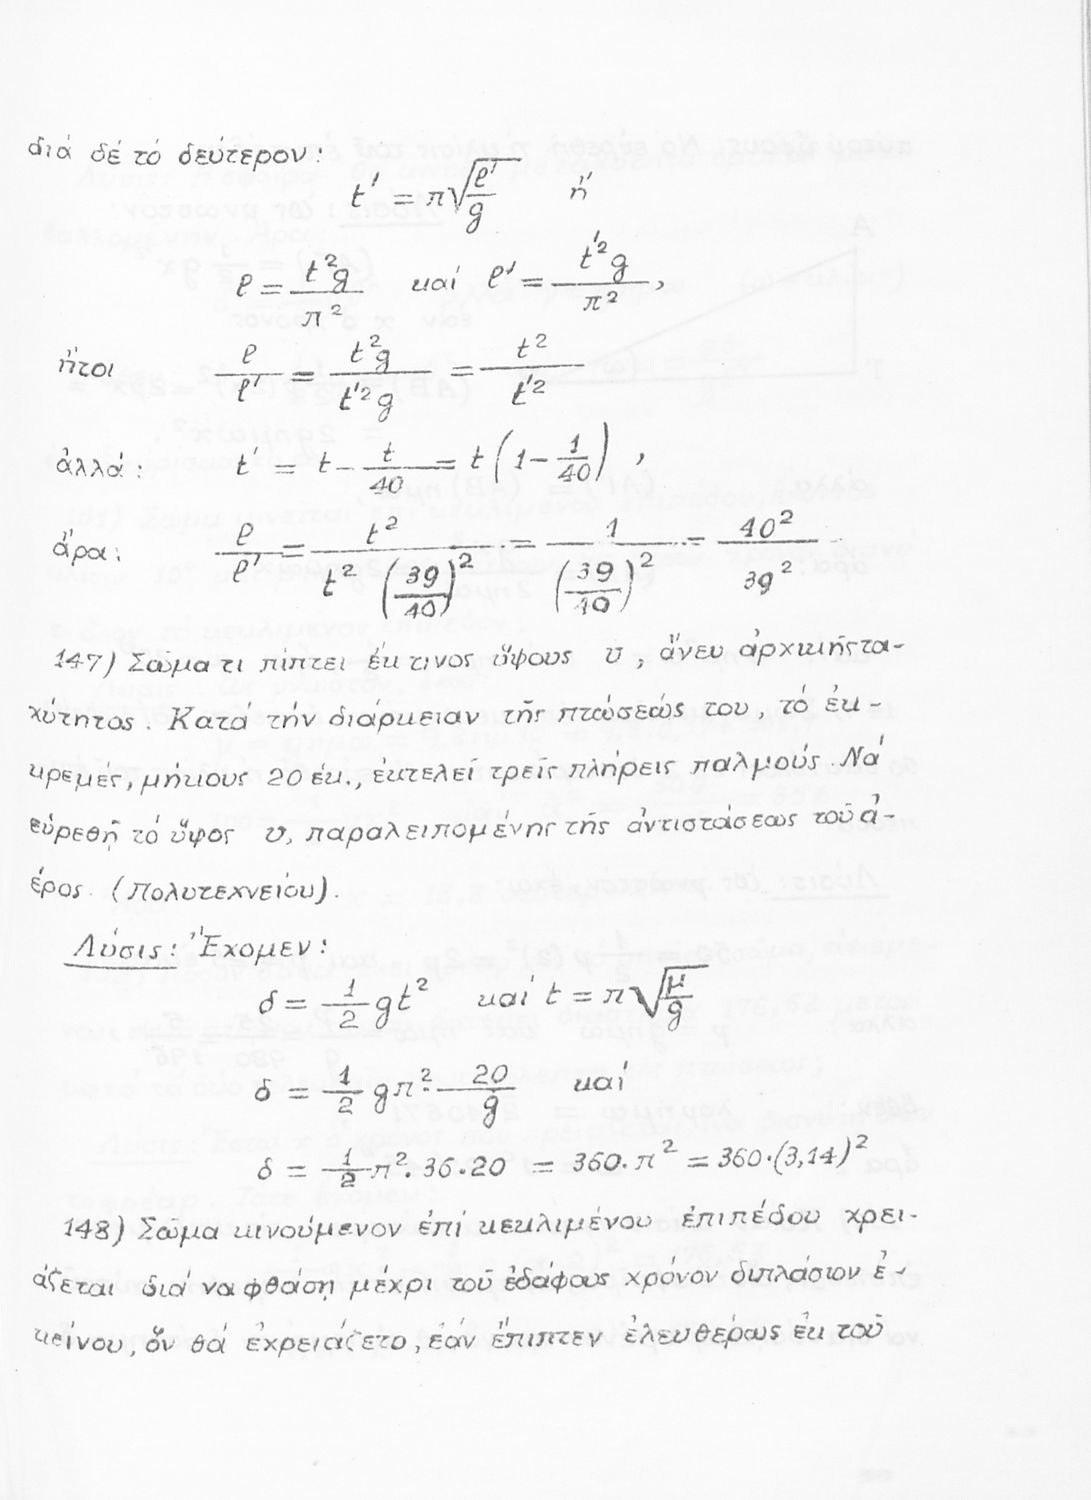 διά δέ τό δεύτερον:
t' = π√(ℓ'/g) ἤ
ℓ = t²g/π² καί ℓ' = t'²g/π²,
ἤτοι ℓ/ℓ' = t²g/t'²g = t²/t'²
ἀλλά: t' = t - t/40 = t (1 - 1/40),
ἄρα: ℓ/ℓ' = t²/t²(39/40)² = 1/(39/40)² = 40²/39²
147) Σῶμα τι πίπτει ἔκ τινος ὕψους υ, ἄνευ ἀρχικῆς τα-
χύτητος. Κατά τήν διάρκειαν τῆς πτώσεώς του, τό ἐκ-
κρεμές, μήκους 20 ἑκ., ἐκτελεῖ τρεῖς πλήρεις παλμούς. Νά
εὑρεθῇ τό ὕψος υ, παραλειπομένης τῆς ἀντιστάσεως τοῦ ἀ-
έρος. (Πολυτεχνείου).
Λύσις: Ἔχομεν:
δ = 1/2 gt² καί t = π√(μ/g)
δ = 1/2 gπ² · 20/g καί
δ = 1/2 π². 36.20 = 360. π² = 360·(3,14)²
148) Σῶμα κινούμενον ἐπί κεκλιμένου ἐπιπέδου χρει-
άζεται διά να φθάσῃ μέχρι τοῦ ἐδάφους χρόνον διπλάσιον ἐ-
κείνου, ὅν θά ἐχρειάζετο, ἐάν ἔπιπτεν ἐλευθέρως ἐκ τοῦ